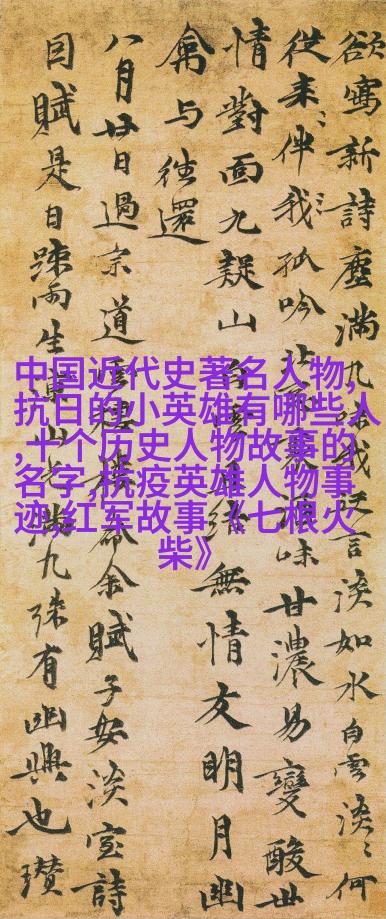 欲寫新詩塵滿 言淡如水白雲淡〻何
従来〻伴我〻孤吟 味甘濃易變酸世
情對面九疑山 無情友明月幽
禽与往還
八月廿日過宗道 命余賦子安淡室詩
因賦是日踈雨生 九殊有幽興也瓚
中国近代史著名人物,
抗日的小英雄有哪些人
,十个历史人物故事的
名字,抗疫英雄人物事
迹,红军故事《七根火
柴》